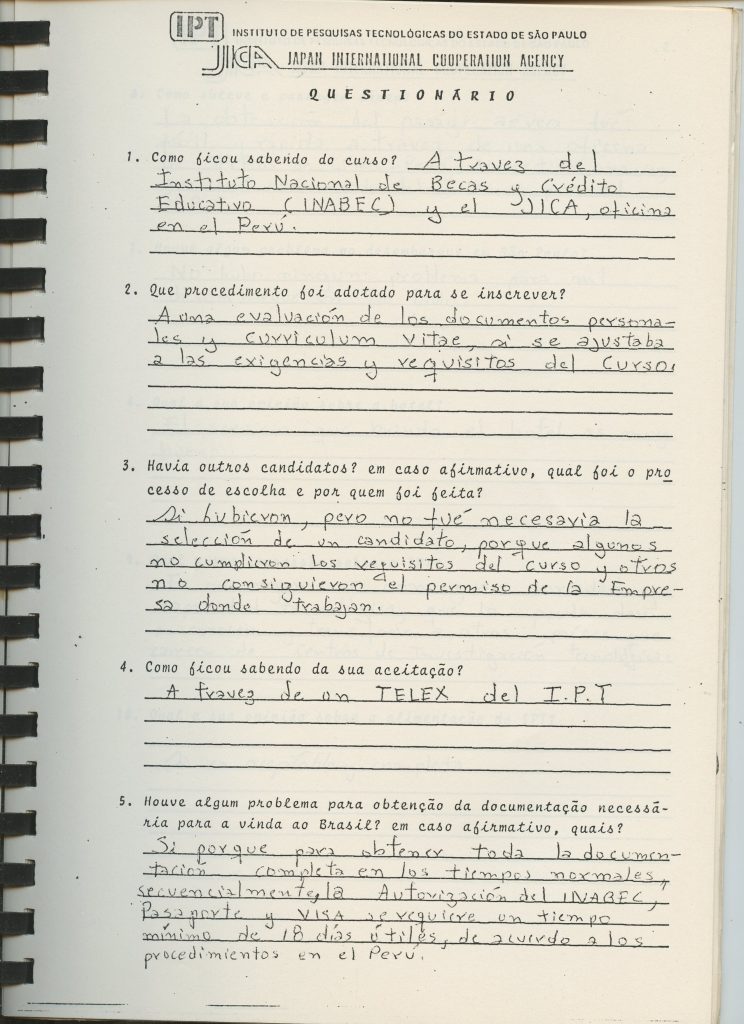 IPT INSTITUTO DE PESQUISAS TECNOLÓGICAS DO ESTADO DE SÃO PAULO
JICA JAPAN INTERNATIONAL COOPERATION AGENCY
QUESTIONÁRIO
1. Como ficou sabendo do curso? A travez del
Instituto Nacional de Becas y Crédito
Educativo (INABEC) y el JICA, oficina
en el Perú.
2. Que procedimento foi adotado para se inscrever?
A una evaluación de los documentos persona-
les y curriculum vitae, si se ajustaba
a las exigencias y requisitos del Curso.
3. Havia outros candidatos? em caso afirmativo, qual foi o pro
cesso de escolha e por quem foi feita?
Si hubieron, pero no fué necesaria la
selección de un candidato, porque algunos
no cumplieron los requisitos del curso y otros
no consiguieron el permiso de la Empre-
sa donde trabajan.
4. Como ficou sabendo da sua aceitação?
A travez de un TELEX del I.P.T
5. Houve algum problema para obtenção da documentação necessá-
ria para a vinda ao Brasil? em caso afirmativo, quais?
Si porque para obtener toda la documen-
tación completa en los tiempos normales,
secuencialmente, la Autorización del INABEC,
Pasaporte y VISA se requiere un tiempo
mínimo de 18 días útiles, de acuerdo a los
procedimientos en el Perú.